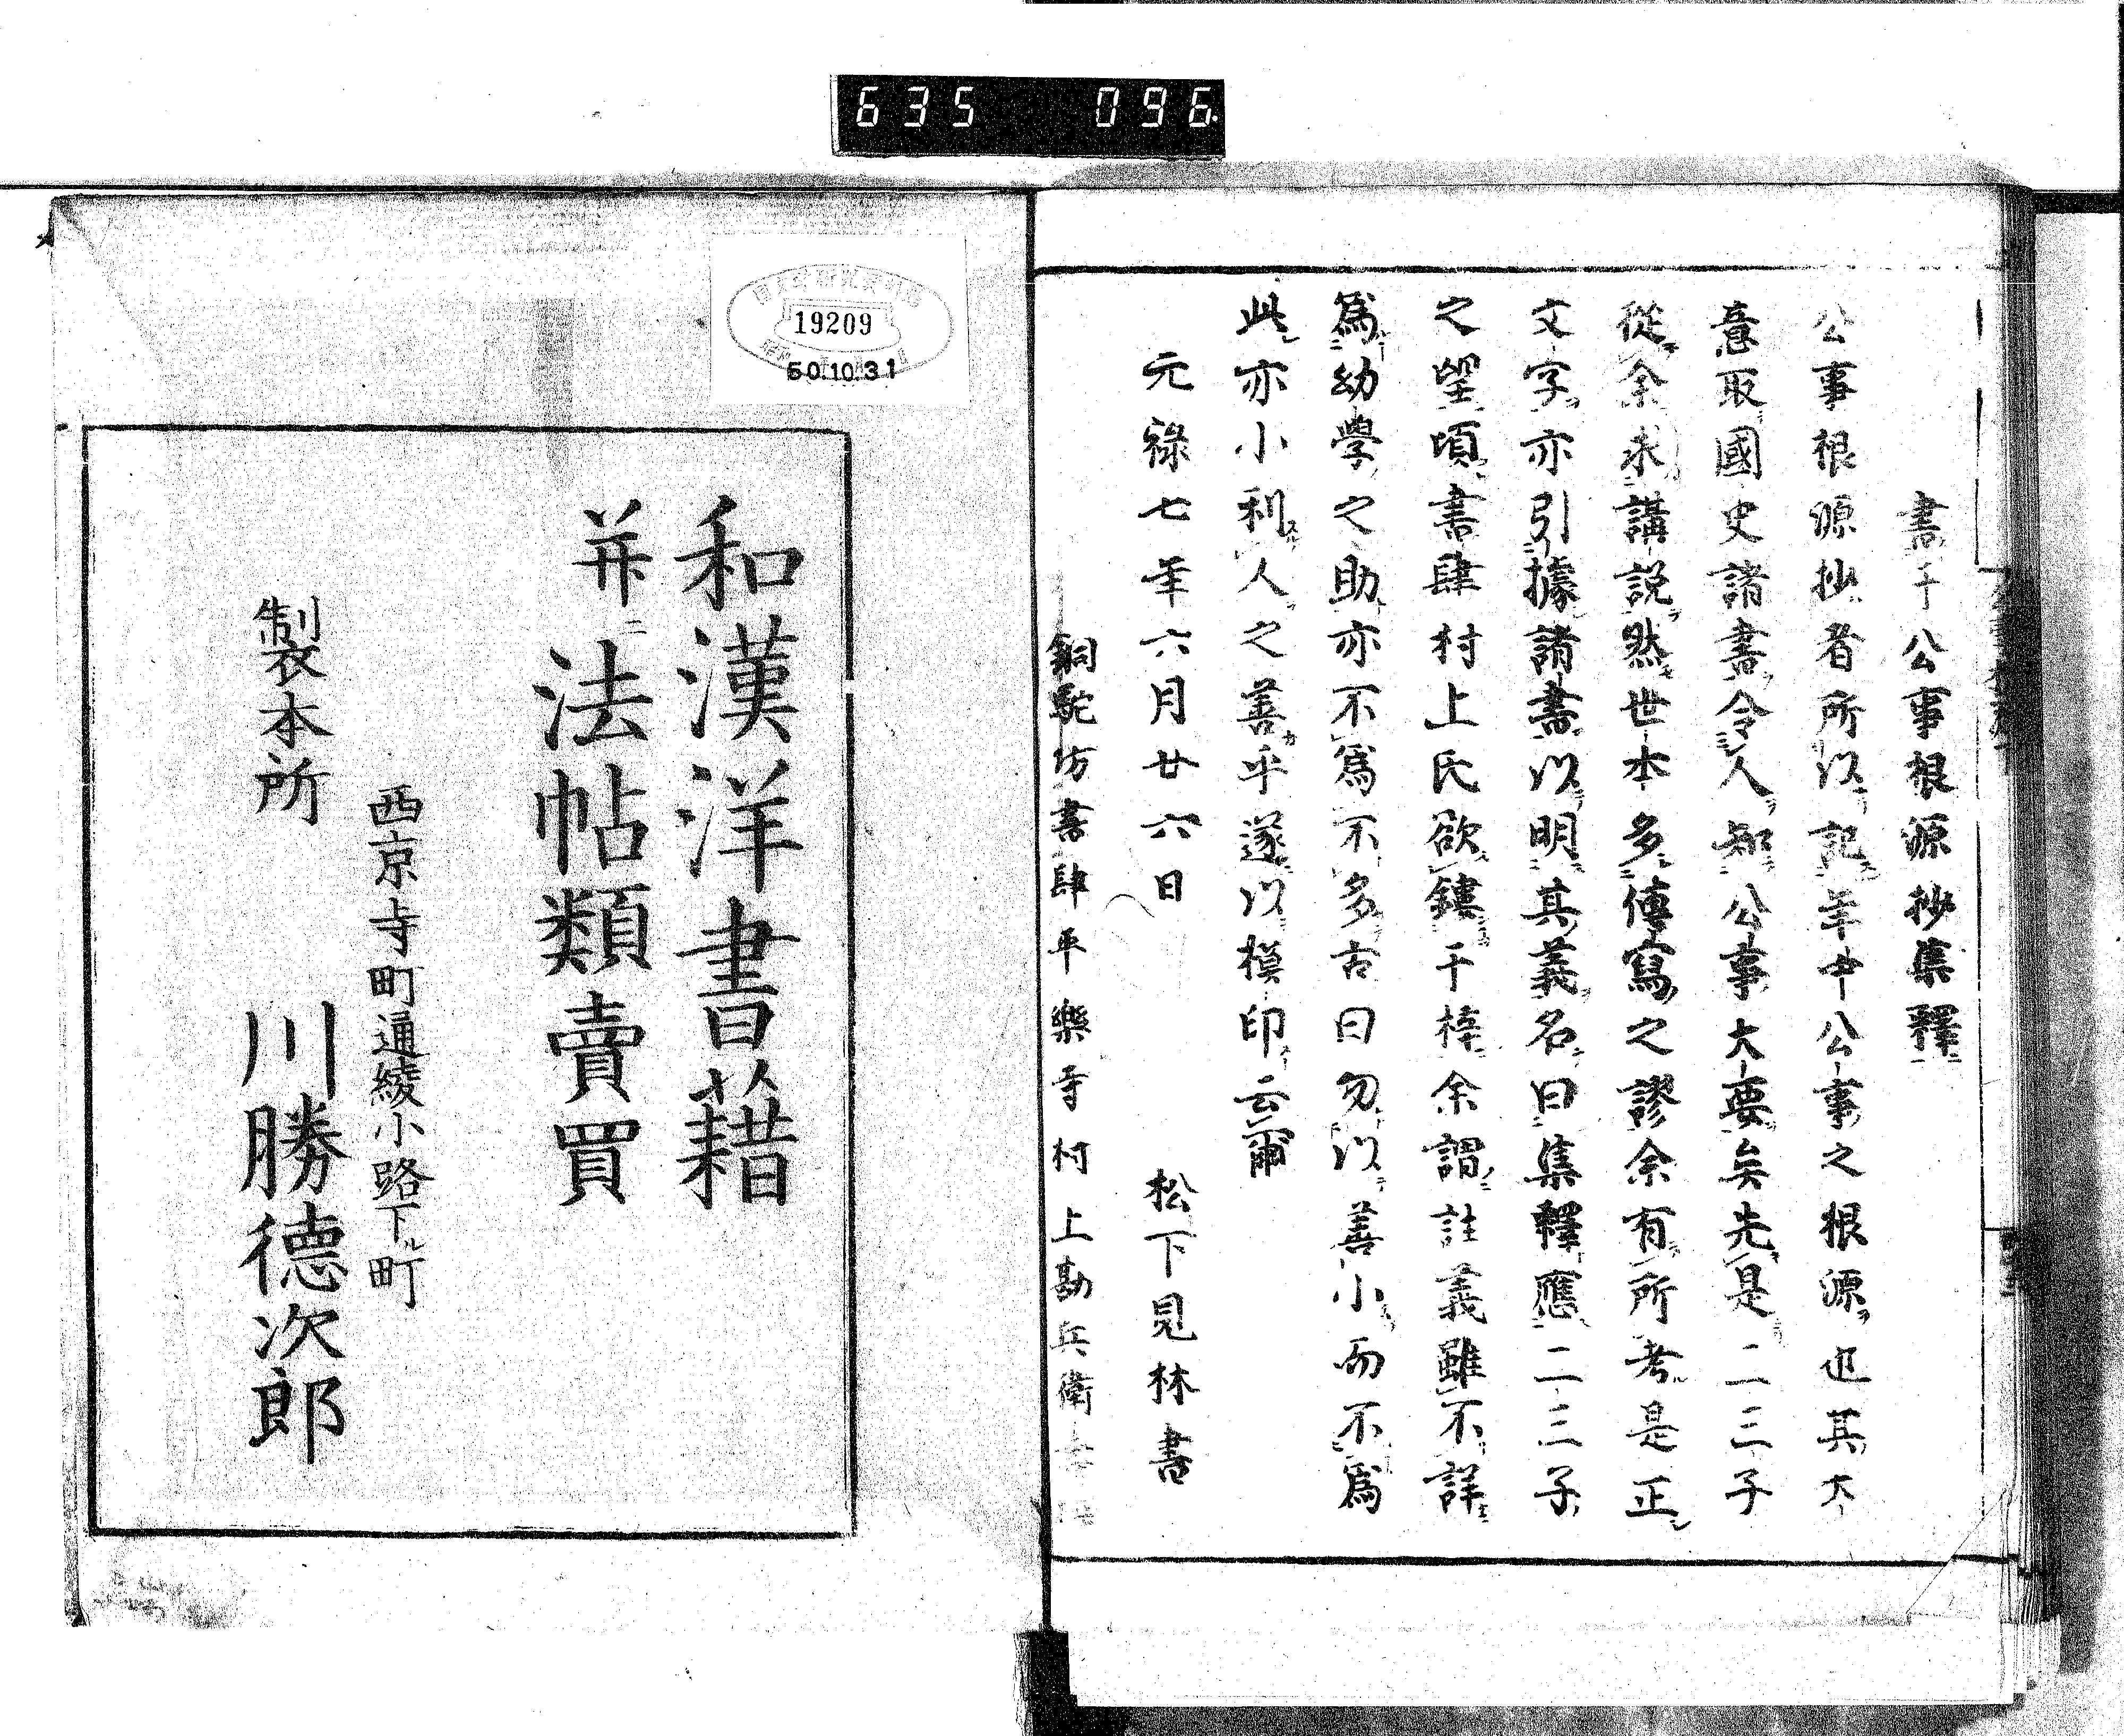 635 096
書于公事根源抄集釋
公事根源抄者所以記年中公事之根源也其大
意取國史諸書令人知公事大要矣先是二三子
從余求講説然世本多傳寫之謬余有所考是正
文字亦引據諸書以明其義名曰集釋應二三子
之望頃書肆村上氏欲鏤于梓余謂註義雖不詳
爲幼學之助亦不爲不多古曰勿以善小而不爲
此亦小利人之善乎遂以模印云爾
元祿七年六月廿六日 松下見林書
銅駝坊書肆平樂寺村上勘兵衛
19209
50.10.31
和漢洋書籍
并ニ法帖類賣買
西京寺町通綾小路下ル町
製本所 川勝德次郎